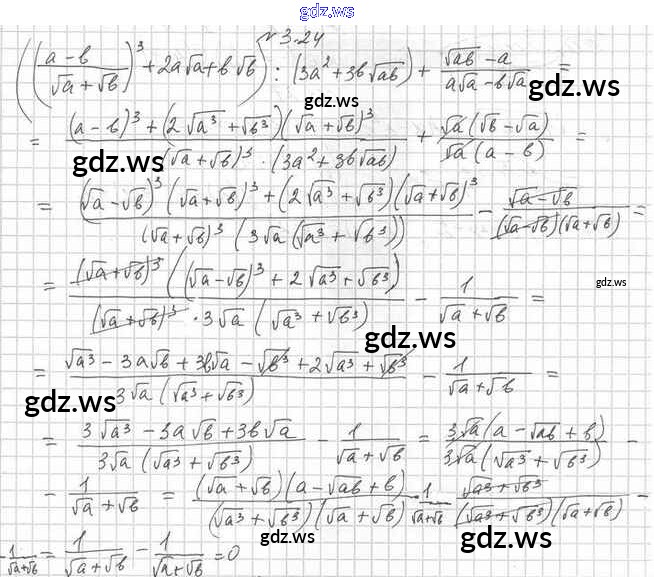 gdz.ws
N 3.24
((a-b)/(√a+√b))³ + 2a√a + b√b) : (3a² + 3b√ab) + (√ab - a)/(a√a - b√a) =
gdz.ws
gdz.ws
= ((a-b)³ + (2√a³ + √b³)(√a+√b)³)/((√a+√b)³ · (3a² + 3b√ab)) + (√a(√b-√a))/(√a(a-b)) =
gdz.ws
gdz.ws
= ((√a-√b)³(√a+√b)³ + (2√a³ + √b³)(√a+√b)³)/((√a+√b)³(3√a(√a³+√b³))) - (√a-√b)/((√a-√b)(√a+√b)) =
= ((√a+√b)³((√a-√b)³ + 2√a³ + √b³))/((√a+√b)³ · 3√a(√a³+√b³)) - 1/(√a+√b) =
gdz.ws
gdz.ws
= (√a³ - 3a√b + 3b√a - √b³ + 2√a³ + √b³)/(3√a(√a³+√b³)) - 1/(√a+√b) =
gdz.ws
gdz.ws
= (3√a³ - 3a√b + 3b√a)/(3√a(√a³+√b³)) - 1/(√a+√b) = (3√a(a-√ab+b))/(3√a(√a³+√b³)) -
- 1/(√a+√b) = ((√a+√b)(a-√ab+b))/((√a³+√b³)(√a+√b)) - 1/(√a+√b) = (√a³+√b³)/((√a³+√b³)(√a+√b)) -
gdz.ws
gdz.ws
- 1/(√a+√b) = 1/(√a+√b) - 1/(√a+√b) = 0